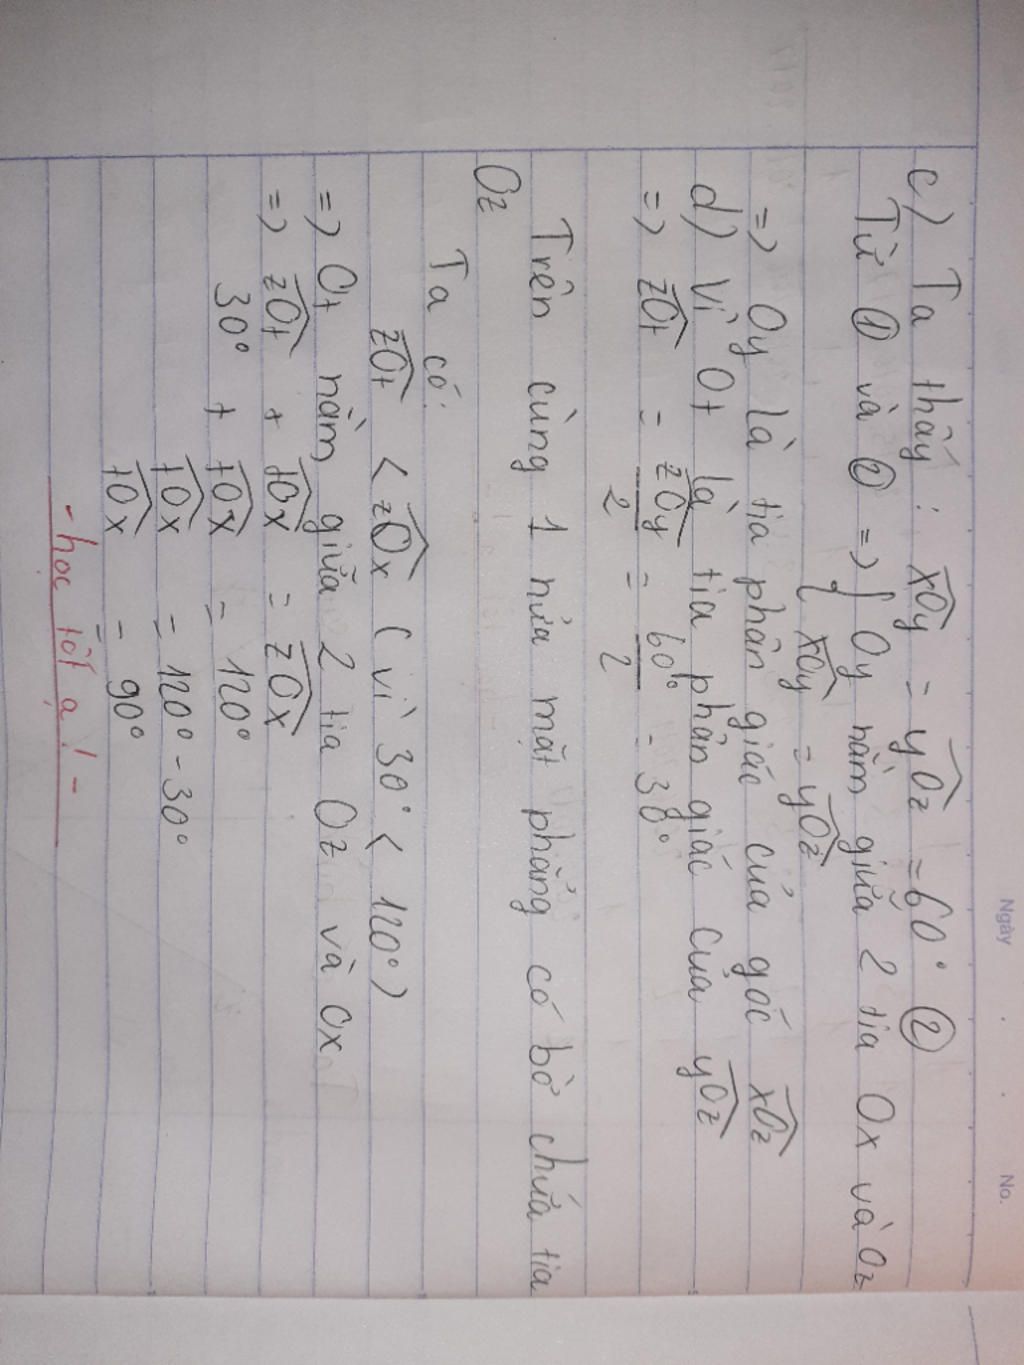 Ngày . . No.
c) Ta thấy: xOy = yOz = 60° ②
Từ ① và ② => { Oy nằm giữa 2 tia Ox và Oz
xOy = yOz
=> Oy là tia phân giác của góc xOz
d) Vì Ot là tia phân giác của yOz
=> zOt = zOy/2 = 60°/2 = 30°
Trên cùng 1 nửa mặt phẳng có bờ chứa tia
Oz
Ta có:
zOt < zOx (vì 30° < 120°)
=> Ot nằm giữa 2 tia Oz và Ox
=> zOt + tOx = zOx
30° + tOx = 120°
tOx = 120° - 30°
tOx = 90°
- học tốt ạ! -